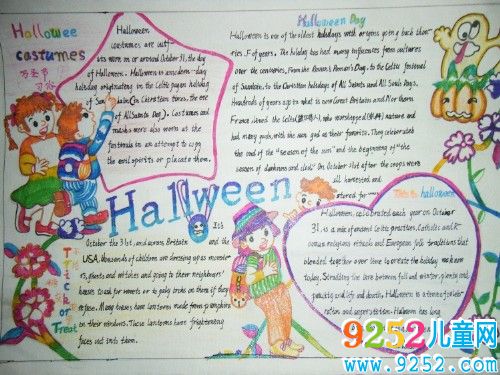 Hallowee
costumes
万圣节
习俗
Halloween
costumes are outf-
its worn on or around October 31, the day
of Halloween. Halloween is a modern-day
holiday originating in the Celtic pagan holiday
of Samhain (in Christian times, the eve
of All Saints Day). Costumes and
masks were also worn at the
festivals in an attempt to copy
the evil spirits or placate them.
Halloween Day
Halloween is one of the oldest holidays with origins going back
of years. The holiday has had many influences from cultures
over the centuries. From the Roman's Pomona's Day, to the Celtic festival
of Samhain, to the Christian holidays of All Saints and All Souls Days.
Hundreds of years ago in what is now Great Britain and Northern
France lived the Celts who worshipped nature and
had many gods, with the sun god as their favorites. They celebrated
the end of the "season of the sun" and the beginning of "the
season of darkness and cold." On October 31st after the crops were
all harvested and
stored for
Hallween
Trick
or
Treat
October the 31st, and across Britain and the
USA, thousands of children are dressing up as monsters,
ghosts and witches and going to their neighbours'
houses to ask for sweets or to play tricks on them if they
refuse. Many houses have lanterns made from pumpkins
in their windows. These lanterns have frightening
faces cut into them.
This is halloween
Halloween, celebrated each year on October
31, is a mix of ancient Celtic practices, Catholic and
Roman religious rituals and European folk traditions that
blended together over time to create the holiday we know
today. Straddling the line between fall and winter, plenty and
paucity and life and death, Halloween is a time of celebration
and superstition. Halloween has long
9252儿童网
www.9252.com